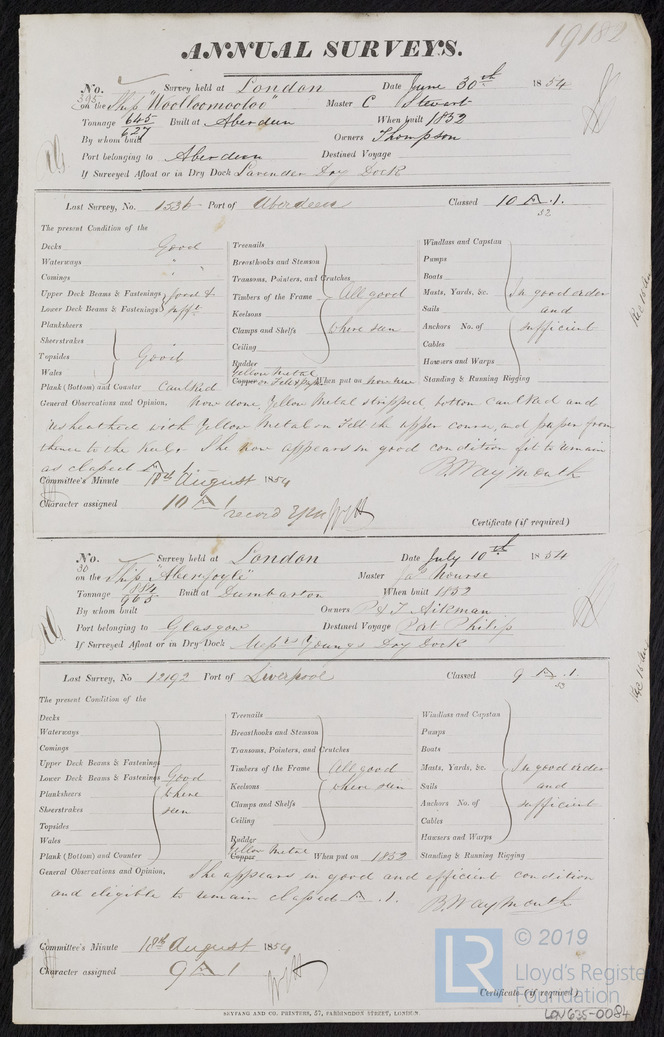 19182
ANNUAL SURVEYS.
No. 395 Survey held at London Date June 30th 1854
on the Ship "Woolloomooloo" Master C Stewart
Tonnage 645 627 Built at Aberdeen When built 1852
By whom built Owners Thompson
Port belonging to Aberdeen Destined Voyage
If Surveyed Afloat or in Dry Dock Lavender Dry Dock
Last Survey, No. 1536 Port of Aberdeen Classed 10 A.1.
52
The present Condition of the
Decks Good
Waterways "
Comings " "
Upper Deck Beams & Fastenings good &
Lower Deck Beams & Fastenings sufft
Planksheers
Sheerstrakes
Topsides Good
Wales
Plank (Bottom) and Counter Caulked
Treenails
Breasthooks and Stemson
Transoms, Pointers, and Crutches
Timbers of the Frame All good
Keelsons
Clamps and Shelfs where seen
Ceiling
Rudder
Yellow Metal
Copper on Felt & paper When put on now new
Windlass and Capstan
Pumps
Boats
Masts, Yards, &c. In good order
Sails and
Anchors No. of sufficient
Cables
Hawsers and Warps
Standing & Running Rigging
General Observations and Opinion, Now done, Yellow Metal stripped, bottom caulked and
resheathed with Yellow Metal on Felt the upper course, and paper from
thence to the Keel. She now appears in good condition fit to remain
as classed A.1. B. Waymouth
Committee's Minute 18th August 1854
Character assigned 10 A 1
record
Certificate (if required)
No. 30 Survey held at London Date July 10th 1854
on the Ship "Aberfoyle" Master Jas Nourse
Tonnage 884 965 Built at Dumbarton When built 1852
By whom built Owners P & T. Aikman
Port belonging to Glasgow Destined Voyage Port Philip
If Surveyed Afloat or in Dry Dock Messrs Youngs Dry Dock
Last Survey, No 12192 Port of Liverpool Classed 9 A.1.
53
The present Condition of the
Decks
Waterways
Comings
Upper Deck Beams & Fastenings
Lower Deck Beams & Fastenings Good
Planksheers where
Sheerstrakes seen
Topsides
Wales
Plank (Bottom) and Counter
Treenails
Breasthooks and Stemson
Transoms, Pointers, and Crutches
Timbers of the Frame All good
Keelsons where seen
Clamps and Shelfs
Ceiling
Rudder
Yellow Metal
Copper When put on 1852
Windlass and Capstan
Pumps
Boats
Masts, Yards, &c. In good order
Sails and
Anchors No. of sufficient
Cables
Hawsers and Warps
Standing & Running Rigging
General Observations and Opinion, She appears in good and efficient condition
and eligible to remain classed A.1. B. Waymouth
Committee's Minute 18th August 1854
Character assigned 9 A 1
Certificate (if required)
SEYFANG AND CO. PRINTERS, 57, FARRINGDON STREET, LONDON.
LR
© 2019
Lloyd's Register
Foundation
LON635-0084